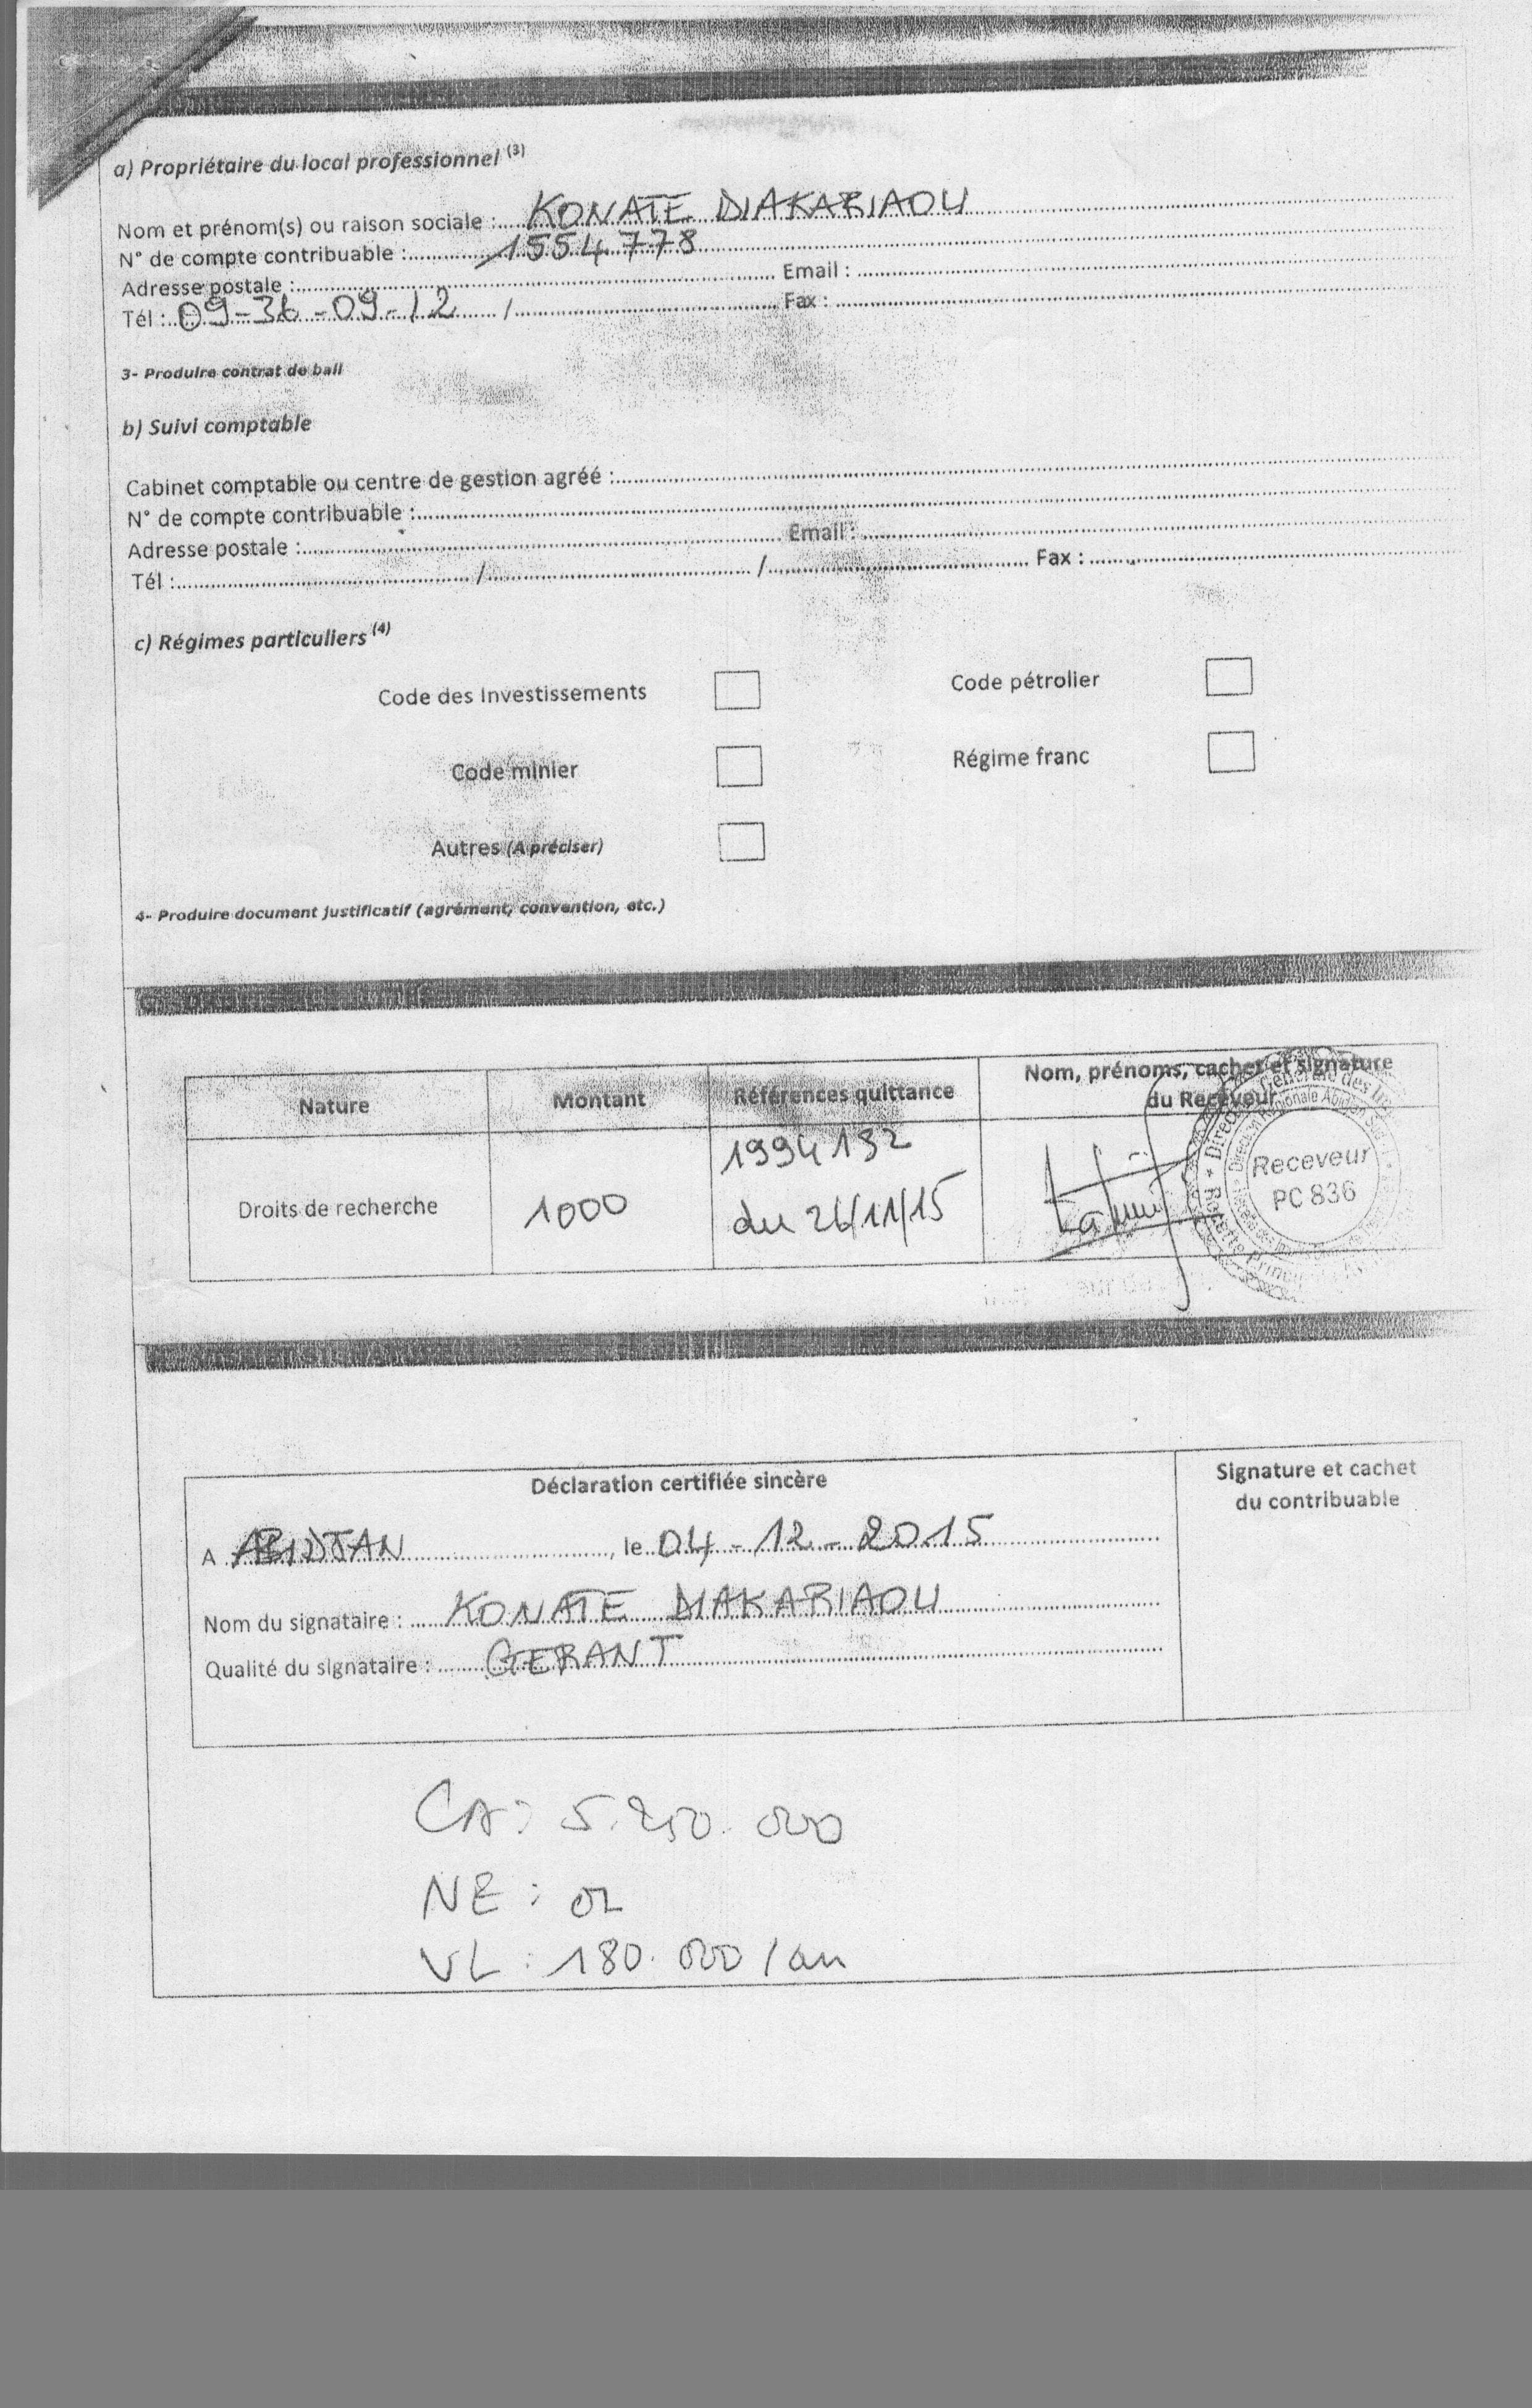 a) Propriétaire du local professionnel (3)
Nom et prénom(s) ou raison sociale : KONATE DIAKARIAOU
N° de compte contribuable : 1554778
Adresse postale : Email :
Tél : 09-36-09-12 / Fax :
3- Produire contrat de bail
b) Suivi comptable
Cabinet comptable ou centre de gestion agréé :
N° de compte contribuable :
Adresse postale : Email :
Tél : / / Fax :
c) Régimes particuliers (4)
Code des Investissements Code pétrolier
Code minier Régime franc
Autres (A préciser)
4- Produire document justificatif (agrément, convention, etc.)
Nature Montant Références quittance Nom, prénoms, cachet et signature
du Receveur
1994132
Droits de recherche 1000 du 26/11/15
Receveur
PC 836
Déclaration certifiée sincère Signature et cachet
du contribuable
A ABIDJAN, le 04-12-2015
Nom du signataire : KONATE DIAKARIAOU
Qualité du signataire : GERANT
CA : 5.250.000
NE : 02
VL : 180.000 / an